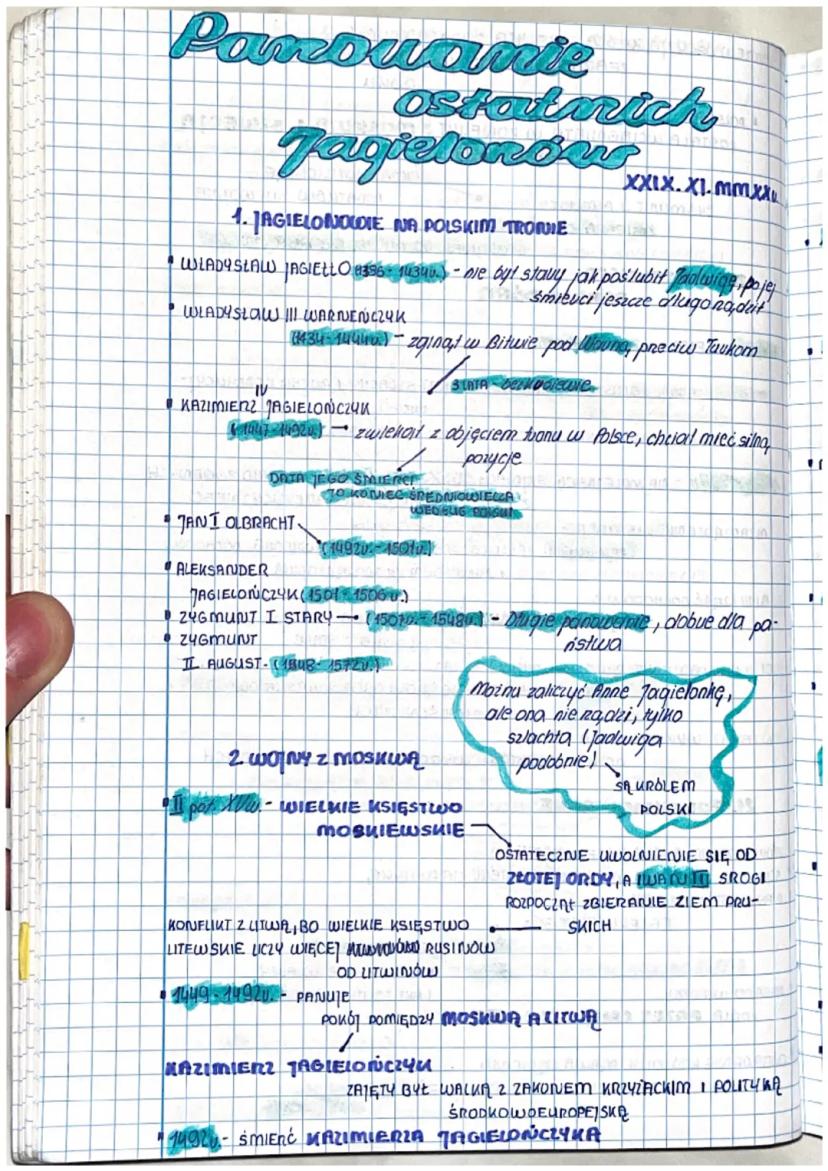 Panowanie
ostatnich
Jagielonów
XXIX. XI. MMXXV
1. JAGIELONOWIE NA POLSKIM TRONIE
• WŁADYSŁAW JAGIEŁŁO (1386 - 1434r.) - nie był stary jak poślubił Jadwigę, po jej
śmierci jeszcze długo rządził
• WŁADYSŁAW III WARNEŃCZYK
(1434-1444r.) - zginął w Bitwie pod Warną, preciw Turkom
3 LATA - bezkrólewie
• KAZIMIERZ IV JAGIELOŃCZYK
(1447-1492r.) - zwlekał z objęciem tronu w Polsce, chciał mieć silną
pozycje
DATA JEGO ŚMIERCI
TO KONIEC ŚREDNIOWIECZA
WEDŁUG POLSKI
• JAN I OLBRACHT
(1492r. - 1501r.)
• ALEKSANDER
JAGIELOŃCZYK (1501 - 1506r.)
• ZYGMUNT I STARY - (1507r. - 1548r.) - Długie panowanie, dobre dla pa-
ństwa
• ZYGMUNT
II AUGUST - (1548 - 1572r.)
Można zaliczyć Anne Jagielonkę,
ale ona nie rządzi, tylko
szlachta (Jadwiga
podobnie)
SĄ KRÓLEM
POLSKI
2 WOJNY Z MOSKWĄ
• II poł. XVw. - WIELKIE KSIĘSTWO
MOSKIEWSKIE
OSTATECZNE UWOLNIENIE SIĘ OD
ZŁOTEJ ORDY, A IWAN III SROGI
ROZPOCZĄŁ ZBIERANIE ZIEM PRU-
SKICH
KONFLIKT Z LITWĄ, BO WIELKIE KSIĘSTWO
LITEWSKIE LICZY WIĘCEJ RUSINÓW
OD LITWINÓW
• 1449 - 1492r. - PANUJE
POKÓJ POMIĘDZY MOSKWĄ A LITWĄ
KAZIMIERZ JAGIELOŃCZYK
ZAJĘTY BYŁ WALKĄ Z ZAKONEM KRZYŻACKIM I POLITYKĄ
ŚRODKOWOEUROPEJSKĄ
• 1492r. - ŚMIERĆ KAZIMIERZA JAGIELOŃCZYKA